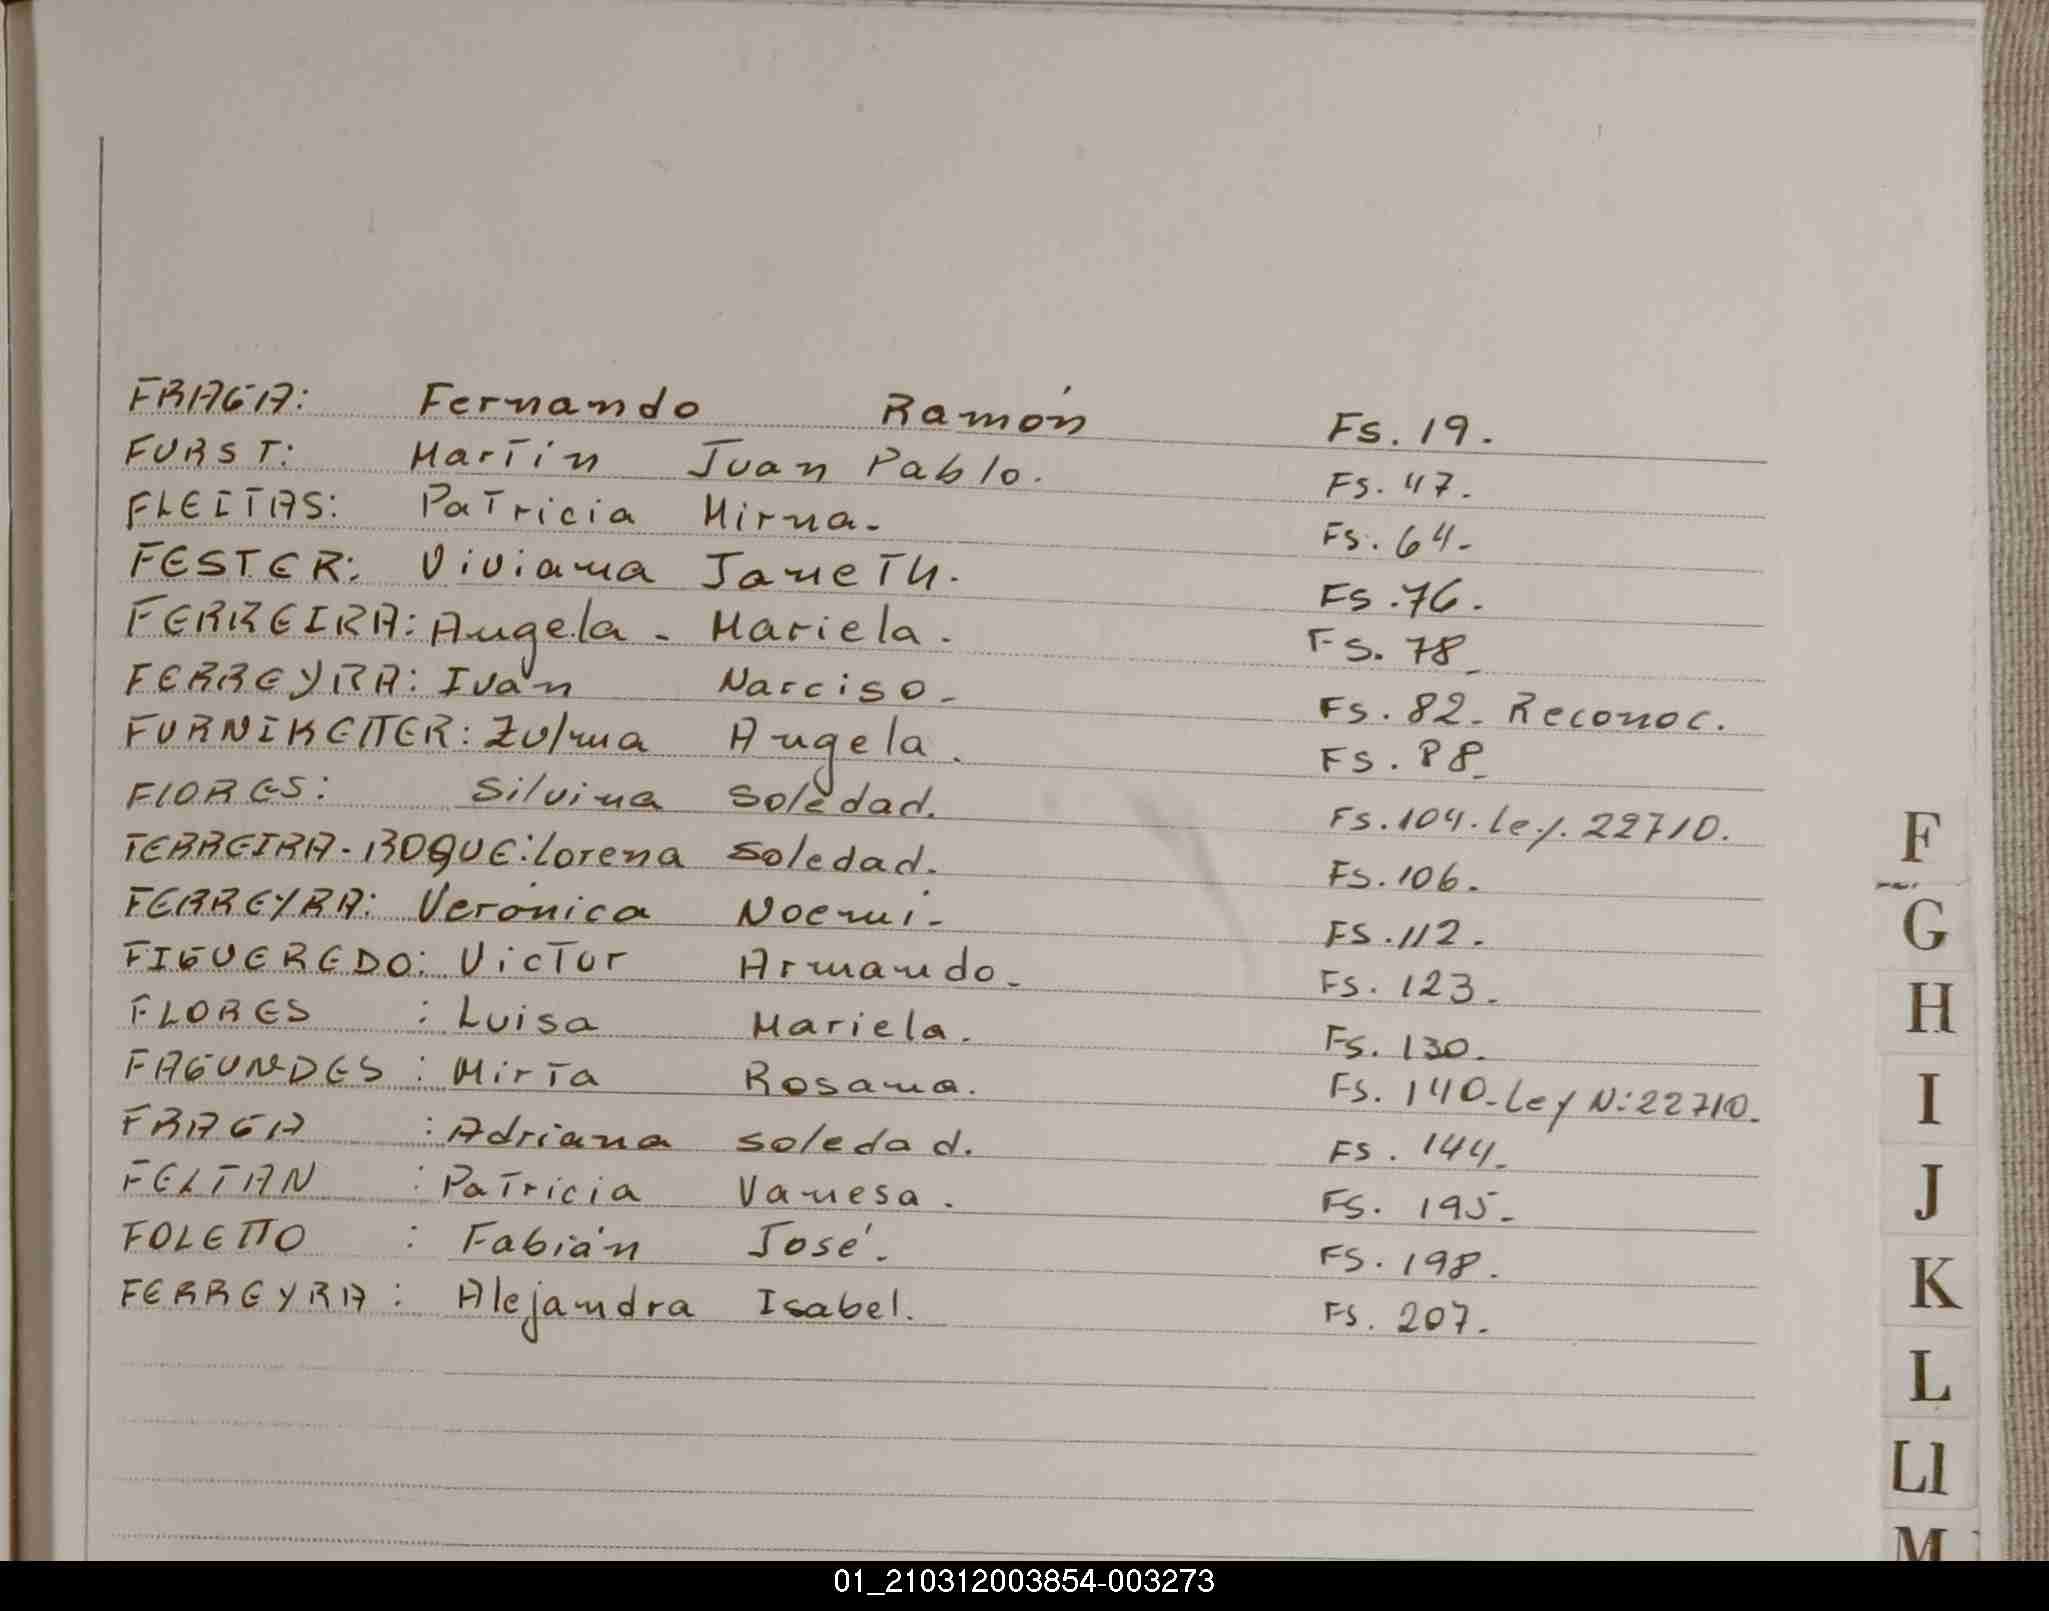 FRAGA: Fernando Ramón Fs. 19.
FURST: Martín Juan Pablo. Fs. 47.
FLEITAS: Patricia Mirna. Fs. 64.
FESTER: Viviana Janeth. Fs. 76.
FERREIRA: Angela - Mariela. Fs. 78_
FERREYRA: Iván Narciso_ Fs. 82_ Reconoc.
FURNIKETTER: Zulma Angela. Fs. 88_
FlORES: Silvina Soledad. Fs. 104. Ley. 22710.
FERREIRA-ROQUE: Lorena Soledad. Fs. 106.
FERREYRA: Verónica Noemí_ Fs. 112.
FIGUEREDO: Victor Armando_ Fs. 123.
FLORES : Luisa Mariela. Fs. 130.
FAGUNDES : Mirta Rosana. Fs. 140_ Ley N: 22710.
FRAGA : Adriana Soledad. Fs. 144_
FELTAN : Patricia Vanesa. Fs. 195_
FOLETTO : Fabián José. Fs. 198.
FERREYRA : Alejandra Isabel. Fs. 207.
F
G
H
I
J
K
L
Ll
M
01_210312003854-003273